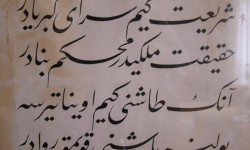 شریعت کیم سرای کبریادر
حقیقت ملکیدر محکم بنادر
آنک طاشنی کیم اویناتیرسه
باشنی قویمق روادر